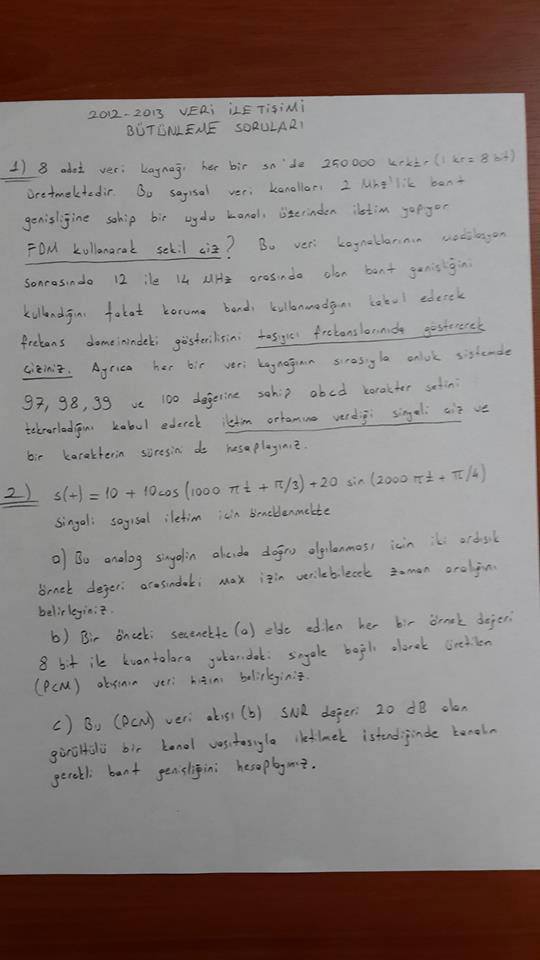 2012-2013 VERİ İLETİŞİMİ
BÜTÜNLEME SORULARI
1) 8 adet veri kaynağı her bir sn'de 250000 krktr (1 kr = 8 bit)
üretmektedir. Bu sayısal veri kanalları 2 Mhz'lik bant
genişliğine sahip bir uydu kanalı üzerinden iletim yapıyor
FDM kullanarak şekil çiz? Bu veri kaynaklarının modülasyon
sonrasında 12 ile 14 MHz arasında olan bant genişliğini
kullandığını fakat koruma bandı kullanmadığını kabul ederek
frekans domeinindeki gösterilişini taşıyıcı frekanslarınıda göstererek
çiziniz. Ayrıca her bir veri kaynağının sırasıyla onluk sistemde
97, 98, 99 ve 100 değerine sahip abcd karakter setini
tekrarladığını kabul ederek iletim ortamına verdiği sinyali çiz ve
bir karakterin süresini de hesaplayınız.
2) s(t) = 10 + 10cos (1000 πt + π/3) + 20 sin (2000 πt + π/4)
Sinyali sayısal iletim için örneklenmekte
a) Bu analog sinyalin alıcıda doğru algılanması için iki ardışık
örnek değeri arasındaki max izin verilebilecek zaman aralığını
belirleyiniz.
b) Bir önceki seçenekte (a) elde edilen her bir örnek değeri
8 bit ile kuantalara yukarıdaki sinyale bağlı olarak üretilen
(PCM) akışının veri hızını belirleyiniz.
c) Bu (PCM) veri akışı (b) SNR değeri 20 dB olan
gürültülü bir kanal vasıtasıyla iletilmek istendiğinde kanalın
gerekli bant genişliğini hesaplayınız.